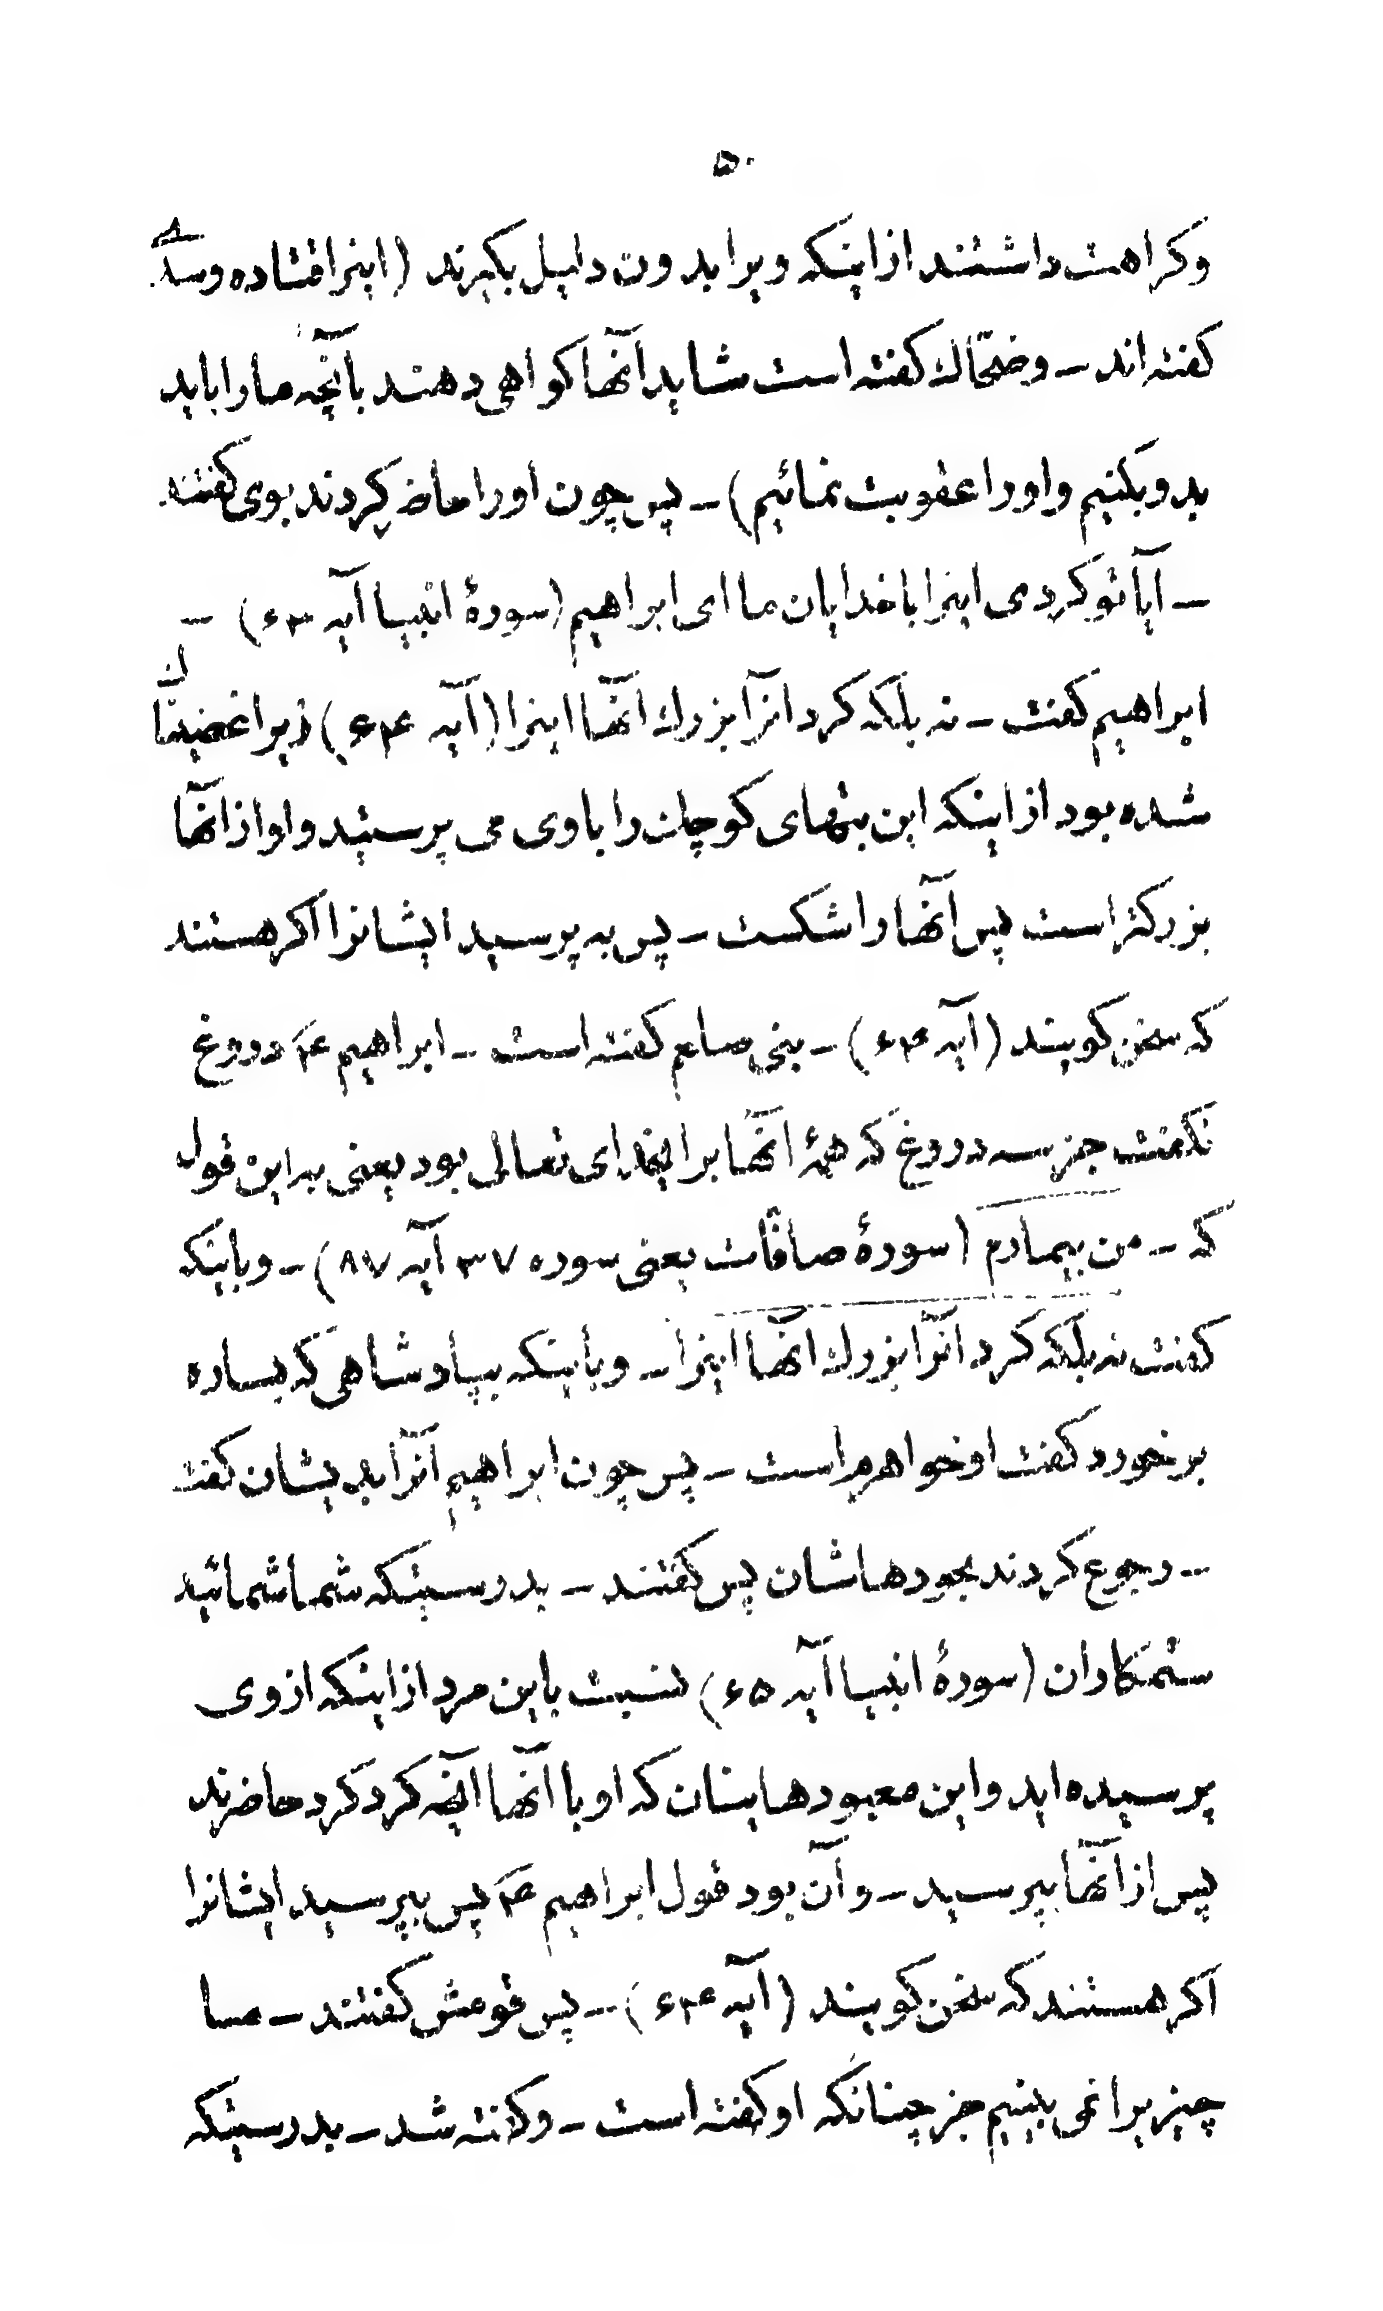 ۵۰
وکراهت داشتند ازاینکه ویرا بدون دلیل بکیرند (اینرا قتاده وسدّی
کفته اند ــ وضحّاك کفته است شاید آنها کواهی دهند بآنچه مارا باید
بدو بکنیم واورا عقوبت نمائیم) ــ پس چون اورا حاضر کردند بوی کفتند
ــ آیا تو کردی اینرا با خدایان ما ای ابراهیم (سورهٔ انبیا آیه ۶۳) ــ
ابراهیم کفت ــ نه بلکه کرد آنرا بزرك آنها اینرا (آیه ۶۴) زیرا غضبناك
شده بود ازاینکه این بتهای کوچك را با وی می پرستید واو از آنها
بزرکتر است پس آنها را شکست ــ پس به پرسید ایشانرا اکر هستند
که سخن کویند (آیه ۶۴) ــ نبی صلعم کفته است ــ ابراهیم ۴ع دروغ
نکفت جز سه دروغ که همهٔ آنها برایخدای تعالی بود یعنی براین قول
که ــ من بیمارم (سورهٔ صافّات یعنی سوره ۳۷ آیه ۸۷) ــ وباینکه
کفت نه بلکه کرد آنرا بزرك آنها اینرا ــ وباینکه بپادشاهی که بساره
برخورد کفت او خواهرم است ــ پس چون ابراهیم آنرا بدیشان کفت
ــ رجوع کردند بخودهاشان پس کفتند ــ بدرستیکه شما شمائید
ستمکاران (سورهٔ انبیا آیه ۶۵) نسبت باین مرد ازاینکه از وی
پرسیده اید واین معبودهایتان که او با آنها آنچه کرد کرد حاضرند
پس از آنها بپرسید ــ وآن بود قول ابراهیم ۴ع پس بپرسید ایشانرا
اکر هستند که سخن کویند (آیه ۶۴) ــ پس قومش کفتند ــ ما
چیزیرا نمی بینیم جز چنانکه او کفته است ــ وکفته شد ــ بدرستیکه